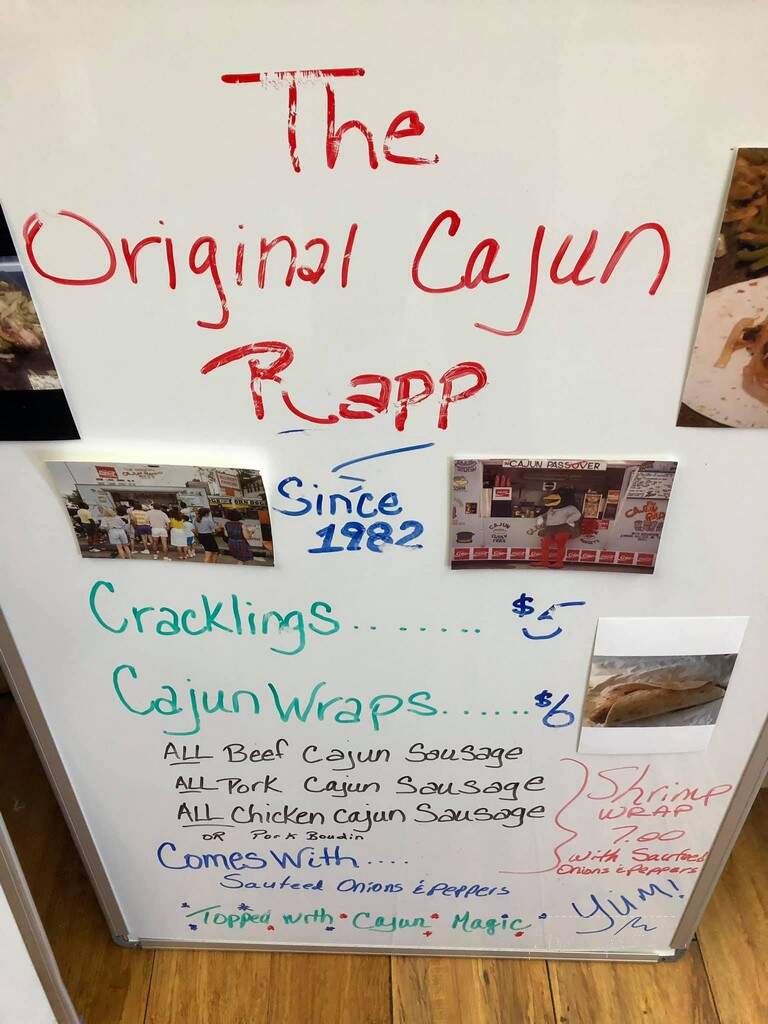 The
Original Cajun
Rapp
CAJUN PASSOVER
Since
1982
Cracklings........ $5
Cajun Wraps...... $6
ALL Beef Cajun Sausage
ALL Pork Cajun Sausage
ALL Chicken Cajun Sausage
OR Pork Boudin
Comes With....
Sauteed Onions & Peppers
Topped with Cajun Magic
Shrimp
WRAP
7.00
with Sauteed
Onions & Peppers
YUM!